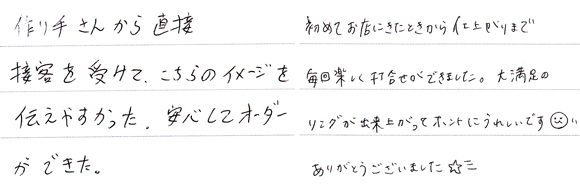 作り手さんから直接
接客を受けて、こちらのイメージを
伝えやすかった。安心してオーダー
ができた。
初めてお店にきたときから仕上がりまで
毎回楽しく打合せができました。大満足の
リングが出来上がってホントにうれしいです☺"
ありがとうございました☆彡